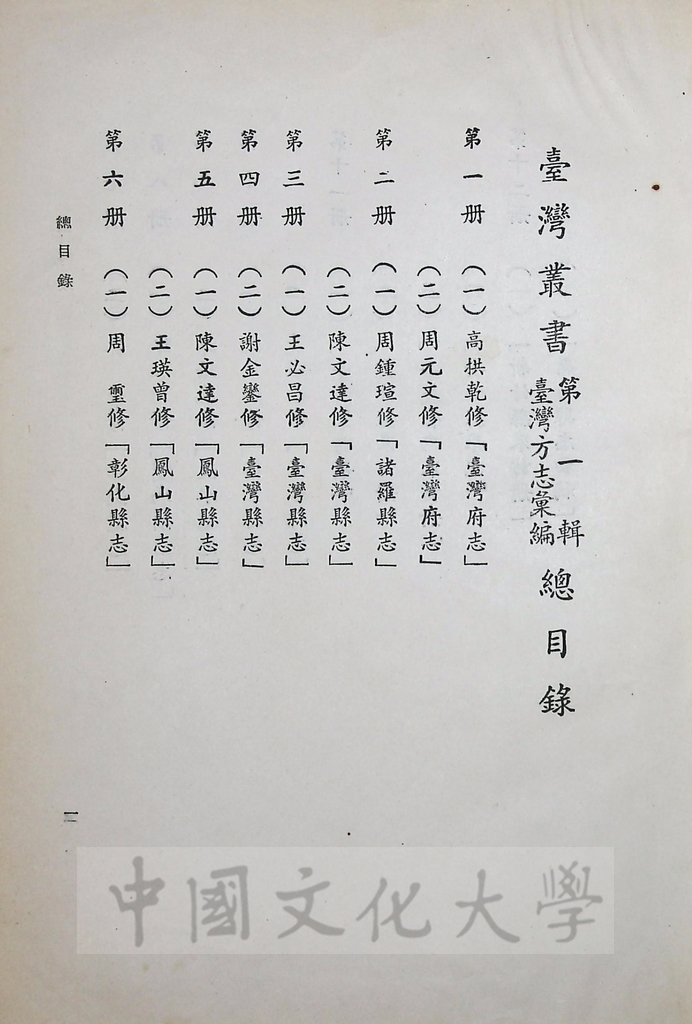 臺灣叢書第一輯臺灣方志彙編總目錄
第一册 (一)高拱乾修「臺灣府志」
(二)周元文修「臺灣府志」
第二册 (一)周鍾瑄修「諸羅縣志」
(二)陳文達修「臺灣縣志」
第三册 (一)王必昌修「臺灣縣志」
第四册 (二)謝金鑾修「臺灣縣志」
第五册 (一)陳文達修「鳳山縣志」
(二)王瑛曾修「鳳山縣志」
第六册 (一)周 璽修「彰化縣志」
總目錄
中國文化大學